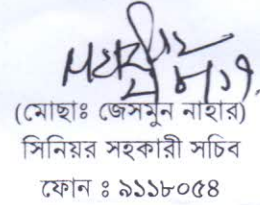 (মোছাঃ জেসমুন নাহার)
সিনিয়র সহকারী সচিব
ফোন ঃ ৯১১৮০৫৪